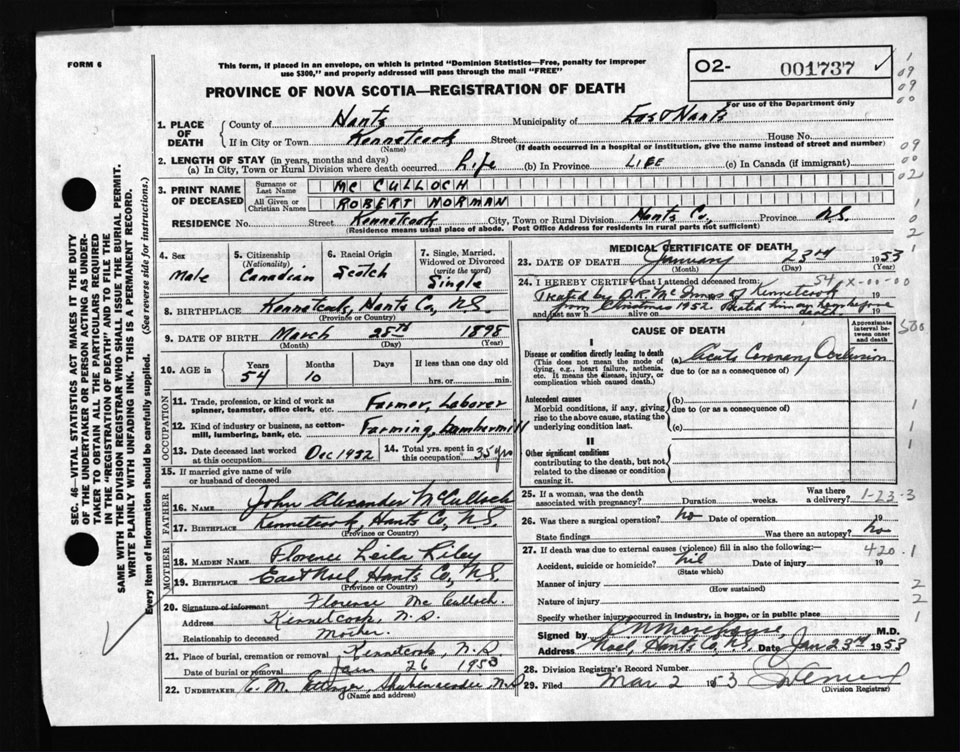 FORM 6
This form, if placed in an envelope, on which is printed "Dominion Statistics—Free, penalty for improper
use $300," and properly addressed will pass through the mail "FREE"
O2- 001737 ✓
For use of the Department only
PROVINCE OF NOVA SCOTIA—REGISTRATION OF DEATH
1. PLACE OF DEATH { County of Hants Municipality of East Hants
If in City or Town Kennetcook (Name) Street House No.
(If death occurred in a hospital or institution, give the name instead of street and number)
2. LENGTH OF STAY (in years, months and days)
(a) In City, Town or Rural Division where death occurred Life (b) In Province LIFE (c) In Canada (if immigrant)
3. PRINT NAME OF DECEASED { Surname or Last Name MC CULLOCH
All Given or Christian Names ROBERT NORMAN
RESIDENCE No. Street Kennetcook City, Town or Rural Division Hants Co, Province N.S.
(Residence means usual place of abode. Post Office Address for residents in rural parts not sufficient)
4. Sex Male
5. Citizenship (Nationality) Canadian
6. Racial Origin Scotch
7. Single, Married, Widowed or Divorced (write the word) Single
8. BIRTHPLACE Kennetcook, Hants Co, N.S.
(Province or Country)
9. DATE OF BIRTH March 28th 1898
(Month) (Day) (Year)
10. AGE in Years 54 Months 10 Days If less than one day old hrs. or min.
OCCUPATION
11. Trade, profession, or kind of work as spinner, teamster, office clerk, etc. Farmer, Laborer
12. Kind of industry or business, as cotton-mill, lumbering, bank, etc. Farming, Lumbermill
13. Date deceased last worked at this occupation Dec 1952
14. Total yrs. spent in this occupation 35 yrs
15. If married give name of wife or husband of deceased
FATHER
16. Name John Alexander McCulloch
17. Birthplace Kennetcook, Hants Co, N.S.
(Province or Country)
MOTHER
18. MAIDEN NAME Florence Leila Riley
19. BIRTHPLACE East Noel, Hants Co., N.S.
(Province or Country)
20. Signature of informant Florence McCulloch.
Address Kennetcook, N.S.
Relationship to deceased Mother.
21. Place of burial, cremation or removal Kennetcook, N.S.
Date of burial or removal Jan 26 1953
22. UNDERTAKER E. M. Ettinger, Shubenacadie, N.S
(Name and address)
MEDICAL CERTIFICATE OF DEATH
23. DATE OF DEATH January 23rd 1953
(Month) (Day) (Year)
24. I HEREBY CERTIFY that I attended deceased from: 54 X-00-00
Treated by D.R. McInnis of Kennetcook 19
from Christmas 1952.
and last saw h alive on death. 19
CAUSE OF DEATH
Approximate interval between onset and death
I
Disease or condition directly leading to death (a) Acute Coronary Occlusion
(This does not mean the mode of dying, e.g., heart failure, asthenia, etc. It means the disease, injury, or complication which caused death.)
due to (or as a consequence of)
Antecedent causes (b)
Morbid conditions, if any, giving rise to the above cause, stating the underlying condition last.
due to (or as a consequence of)
(c)
II
Other significant conditions
contributing to the death, but not related to the disease or condition causing it.
25. If a woman, was the death associated with pregnancy? Duration weeks. Was there a delivery? 1-23-3
26. Was there a surgical operation? no Date of operation 19
State findings Was there an autopsy? no
27. If death was due to external causes (violence) fill in also the following:— 420.1
Accident, suicide or homicide? nil Date of injury 19
(State which)
Manner of injury
(How sustained)
Nature of injury
Specify whether injury occurred in industry, in home, or in public place
Signed by M.D.
Address Noel, Hants Co, N.S. Date Jan 23rd 1953
28. Division Registrar's Record Number
29. Filed Mar 2 1953
(Division Registrar)
SEC. 46—VITAL STATISTICS ACT MAKES IT THE DUTY
OF THE UNDERTAKER OR PERSON ACTING AS UNDER-
TAKER TO OBTAIN ALL THE PARTICULARS REQUIRED
IN THE "REGISTRATION OF DEATH" AND TO FILE THE
SAME WITH THE DIVISION REGISTRAR WHO SHALL ISSUE THE BURIAL PERMIT.
WRITE PLAINLY WITH UNFADING INK. THIS IS A PERMANENT RECORD.
Every item of information should be carefully supplied. (See reverse side for instructions.)